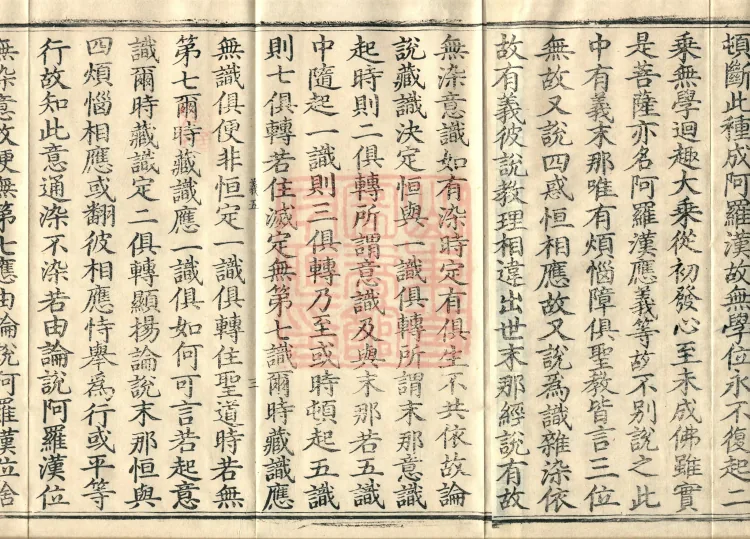 頓斷此種成阿羅漢故無學位永不復起二
乘無學迴趣大乘從初發心至未成佛雖實
是菩薩亦名阿羅漢應義等故不別說之此
中有義末那唯有煩惱障俱聖教皆言三位
無故又說四惑恒相應故又說為識雜染依
故有義彼說教理相違出世末那經說有故
無染意識如有染時定有俱生不共依故論
說藏識決定恒與一識俱轉所謂末那意識
起時則二俱轉所謂意識及與末那若五識
中隨起一識則三俱轉乃至或時頓起五識
則七俱轉若住滅定無第七識爾時藏識應
義五
三
無識俱便非恒定一識俱轉住聖道時若無
第七爾時藏識應一識俱如何可言若起意
識爾時藏識定二俱轉顯揚論說末那恒與
四煩惱相應或翻彼相應恃舉為行或平等
行故知此意通染不染若由論說阿羅漢位
無染意故便無第七應由論說阿羅漢位捨